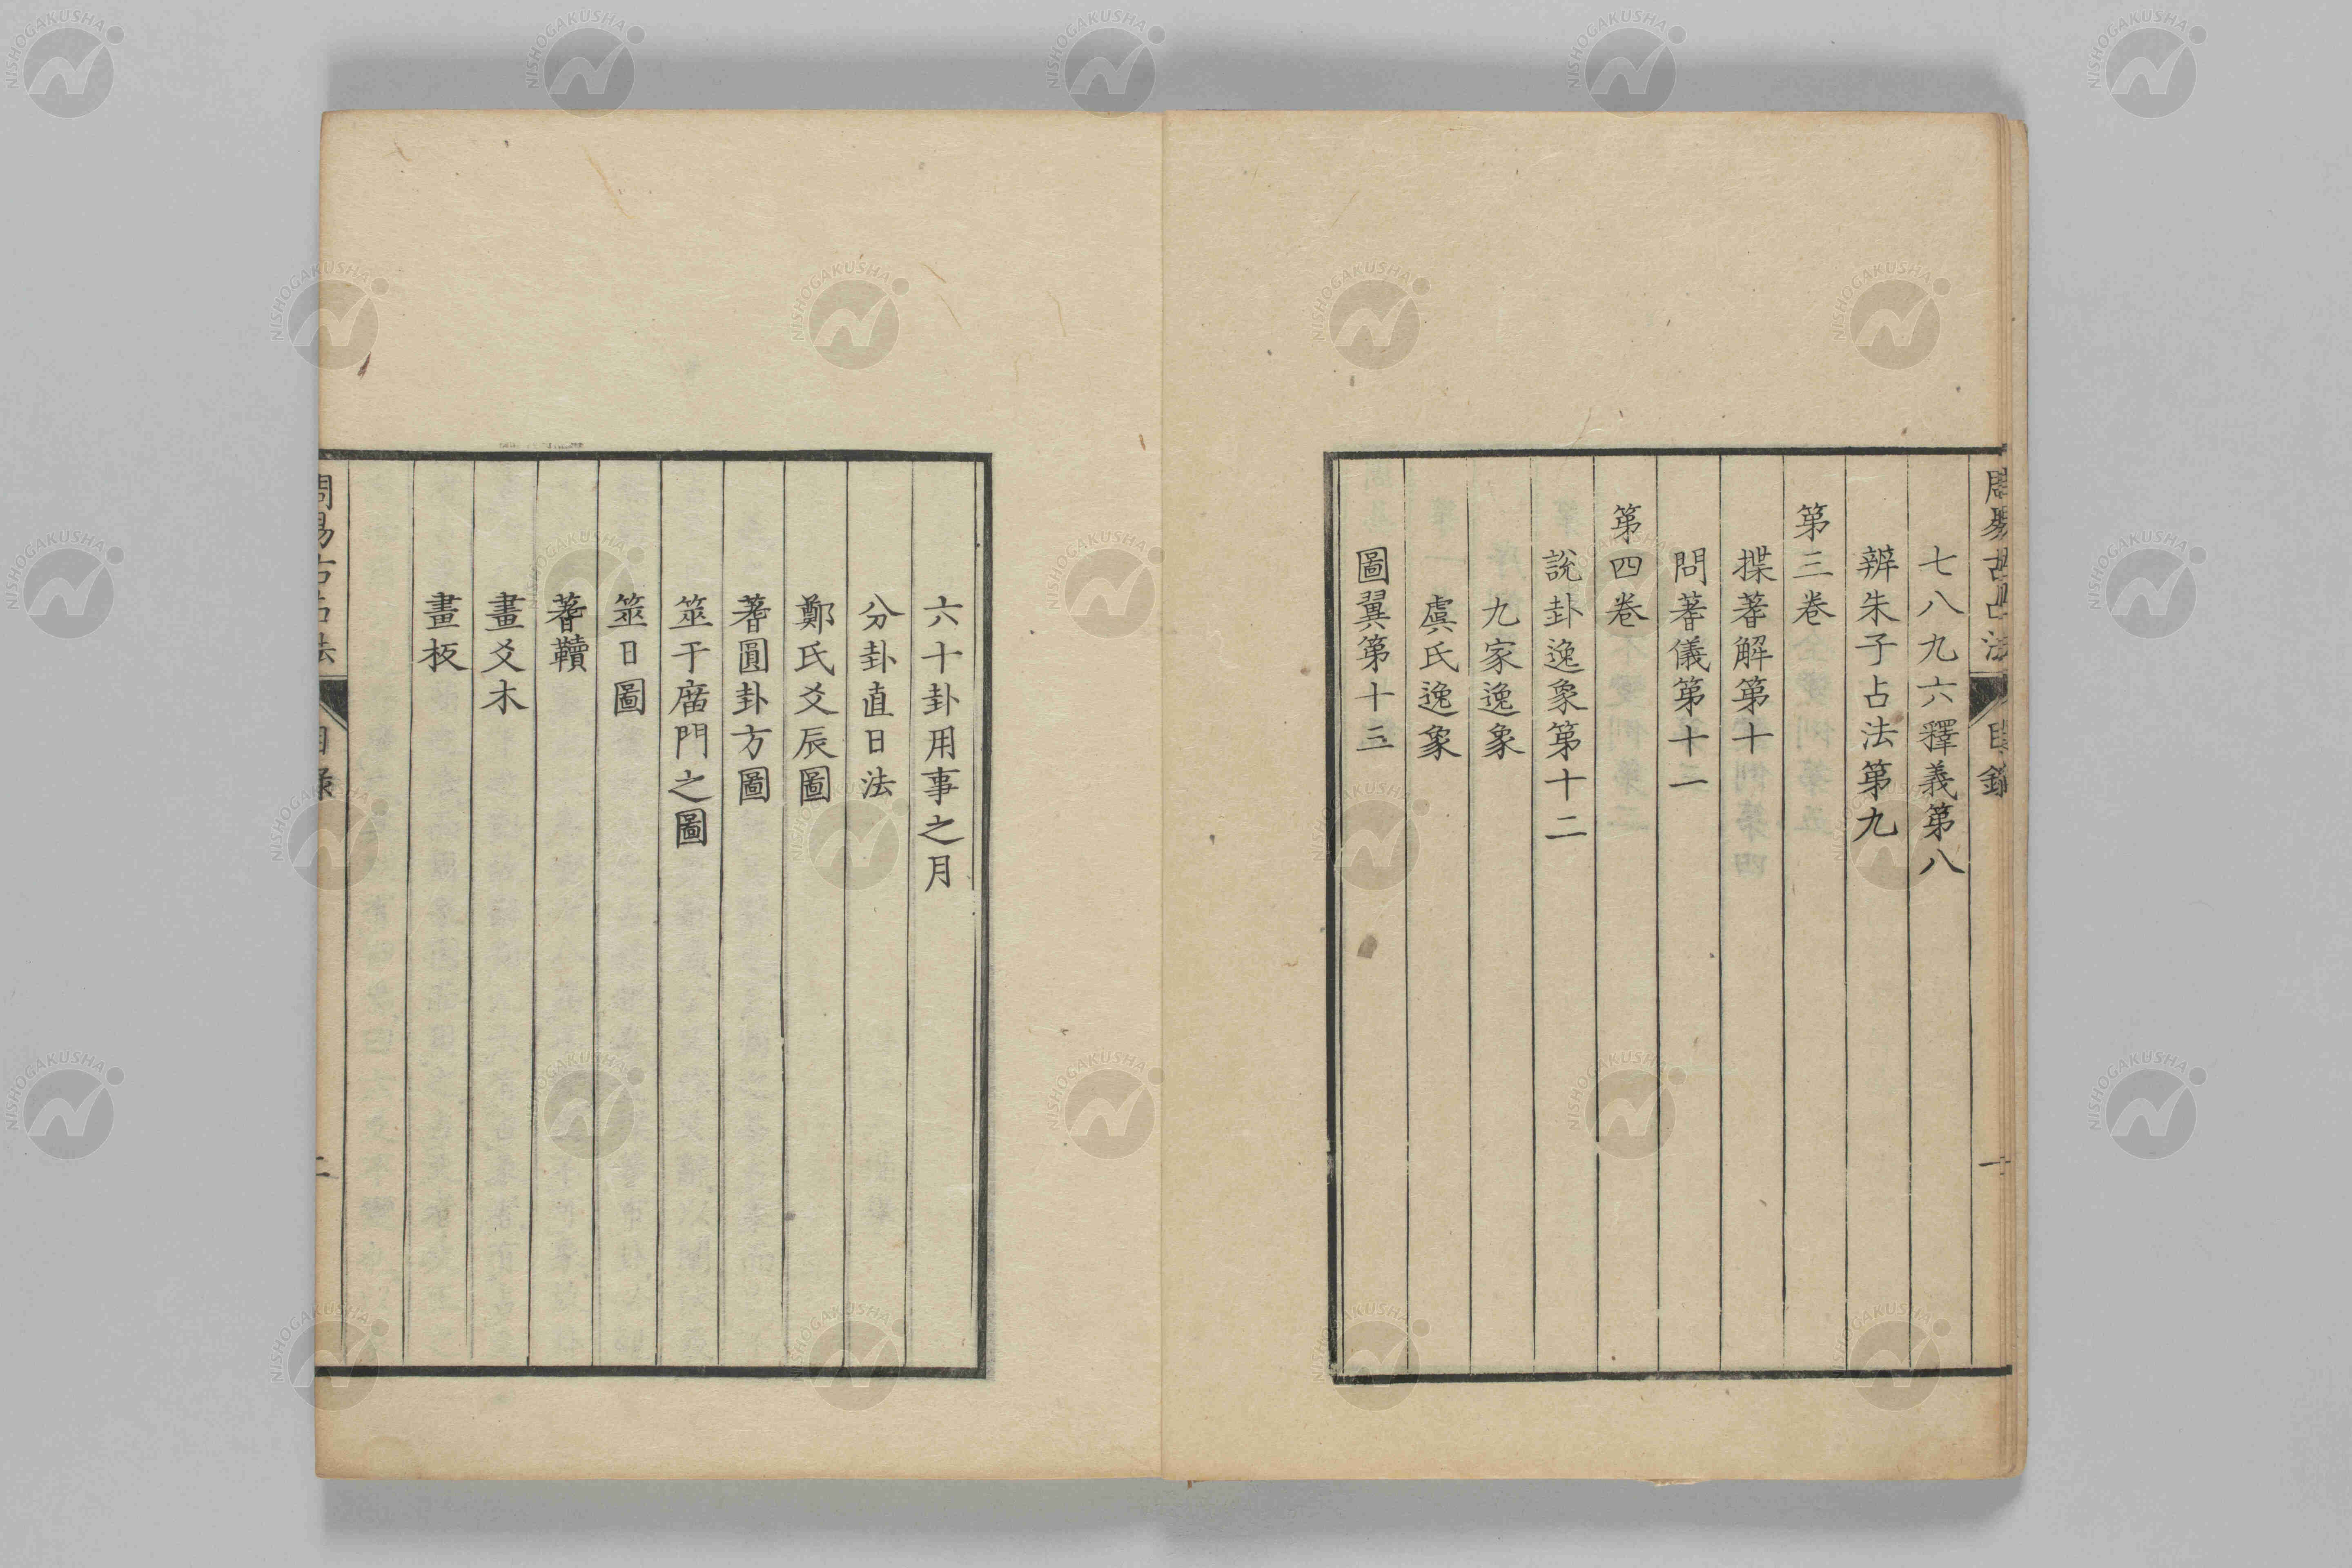 周易古占法 目錄 一
七八九六釋義第八
辨朱子占法第九
第三卷
揲蓍解第十
問蓍儀第十一
第四卷
說卦逸象第十二
九家逸象
虞氏逸象
圖翼第十三
六十卦用事之月
分卦直日法
鄭氏爻辰圖
蓍圓卦方圖
筮于庿門之圖
筮日圖
蓍韇
畫爻木
畫板
周易古占法 目錄 二
NISHOGAKUSHA